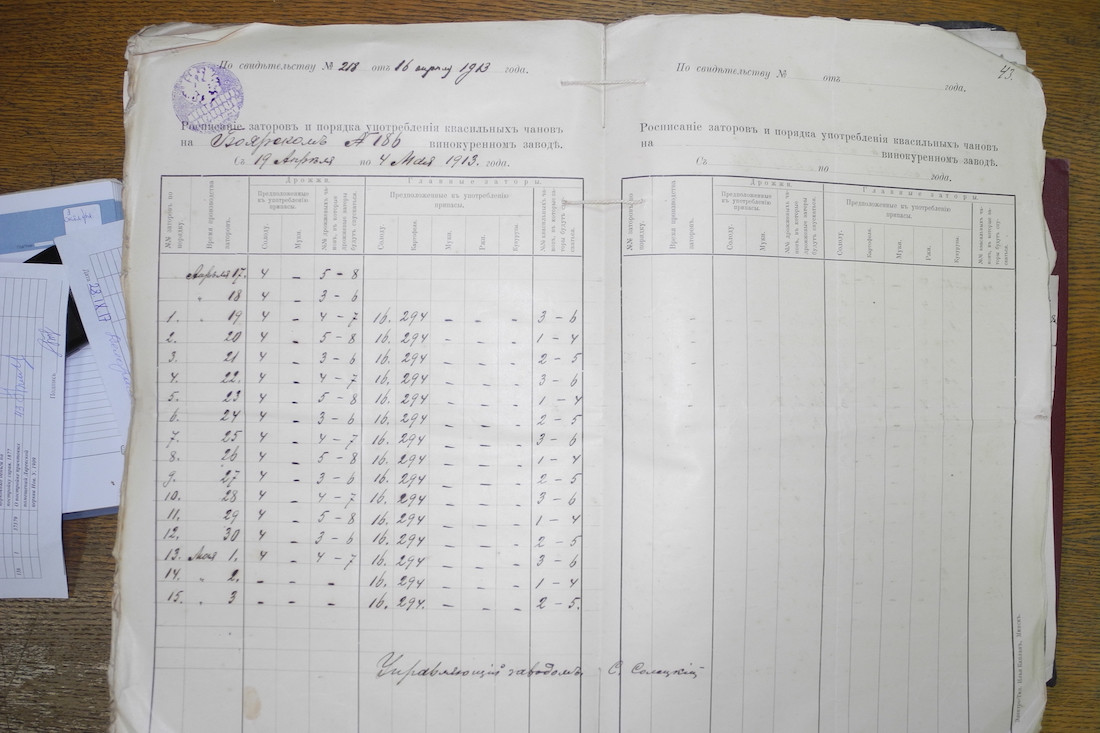 По свидѣтельству № 218 отъ 16 апрѣля 1913 года.
Росписаніе заторовъ и порядка употребленія квасильныхъ чановъ
на Боярскомъ № 186 винокуренномъ заводѣ.
Съ 19 Апрѣля по 4 Мая 1913 года.
№№ заторовъ по порядку.
Время производства заторовъ.
Дрожжи.
Предположенные къ употребленію припасы.
Солоду.
Муки.
№№ дрожжевыхъ чановъ, въ которые дрожжевые заторы будутъ спускаться.
Главные заторы.
Предположенные къ употребленію припасы.
Солоду.
Картофеля.
Муки.
Ржи.
Кукурузы.
№№ квасильныхъ чановъ, въ которые заторы будутъ спускаться.
Апрѣля 17. 4 - 5 - 8
" 18 4 - 3 - 6
1. " 19 4 - 4 - 7 16. 294 - - - 3 - 6
2. 20 4 - 5 - 8 16. 294 - - - 1 - 4
3. 21 4 - 3 - 6 16. 294 - - - 2 - 5
4. 22. 4 - 4 - 7 16. 294 - - - 3 - 6
5. 23 4 - 5 - 8 16. 294 - - - 1 - 4
6. 24 4 - 3 - 6 16. 294 - - - 2 - 5
7. 25 4 - 4 - 7 16. 294 - - - 3 - 6
8. 26 4 - 5 - 8 16. 294 - - - 1 - 4
9. 27 4 - 3 - 6 16. 294 - - - 2 - 5
10. 28 4 - 4 - 7 16. 294 - - - 3 - 6
11. 29 4 - 5 - 8 16. 294 - - - 1 - 4
12. 30 4 - 3 - 6 16. 294 - - - 2 - 5
13. Мая 1. 4 - 4 - 7 16. 294 - - - 3 - 6
14. " 2. - - - 16. 294 - - - 1 - 4
15. " 3 - - - 16. 294. - - - 2 - 5.
Управляющій заводомъ С. Солецкій
43.
По свидѣтельству № отъ года.
Росписаніе заторовъ и порядка употребленія квасильныхъ чановъ
на винокуренномъ заводѣ.
Съ по года.
№№ заторовъ по порядку.
Время производства заторовъ.
Дрожжи.
Предположенные къ употребленію припасы.
Солоду.
Муки.
№№ дрожжевыхъ чановъ, въ которые дрожжевые заторы будутъ спускаться.
Главные заторы.
Предположенные къ употребленію припасы.
Солоду.
Картофеля.
Муки.
Ржи.
Кукурузы.
№№ квасильныхъ чановъ, въ которые заторы будутъ спускаться.
28.IX.17
Подпись